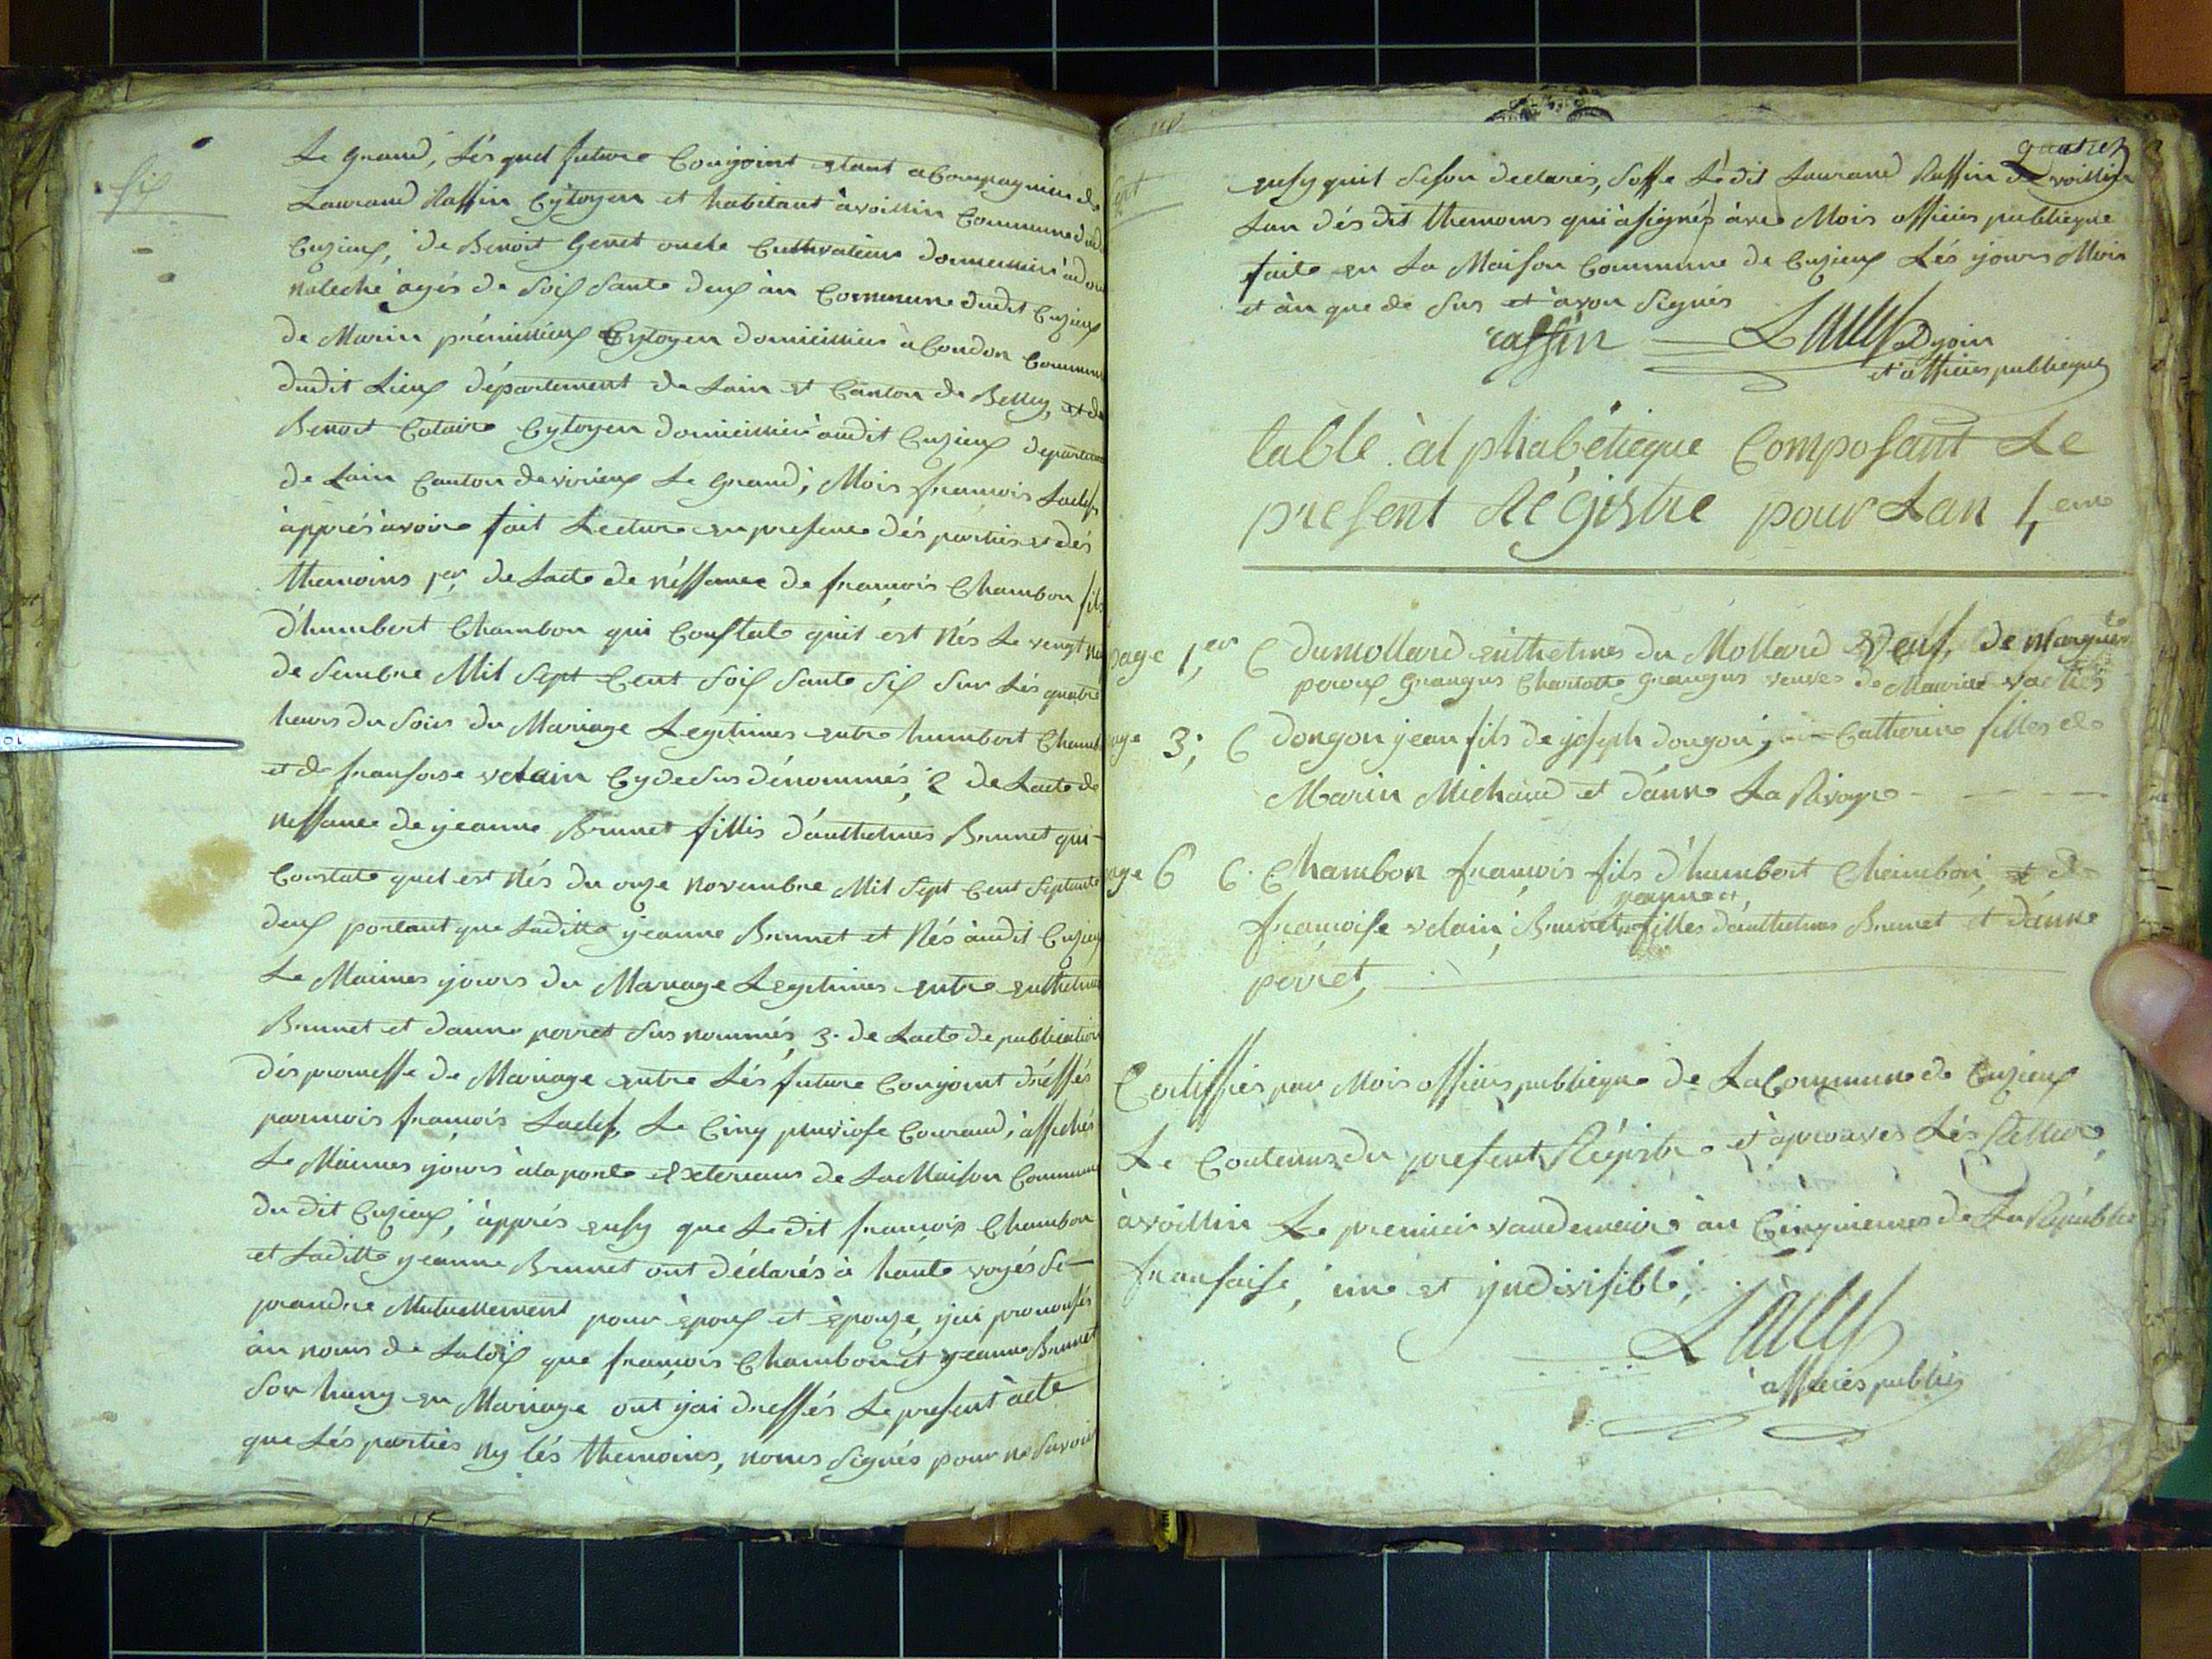 six
Le grand, Lés quel future Conjoint etant acompagniés de
Laurand Raffin Cytoyen et habitant àvoillin Commune dud
Cuzieux, de Benoit Genet oncle Cultivateur domicillié àdou
naleche àgés de soix sante deux àn Commune dudit Cuzieux
de Marin prémillieux Cytoyen domicilliés à Condon Commune
dudit Lieux département de Lain et Canton de Belley, et de
Benoit Cataire Cytoyen domicillié audit Cuzieux departem
de Lain Canton de virieux Le grand; Mois françois Laclef,
àpprés àvoire fait Lecture en presence dés parties et dés
themoins 1er, de Lacte de néssance de françois Chambon fils
d'humbert Chambon qui Constate quil est Nés Le vengt
de sembre Mil Sept Cent soix sante six sur Lés quatre
heurs du soir du Mariage Legitimes entre humbert Chamb
et de fransoise velain Cy desus dénommés; 2 de Lacte de
nessance de yeanne Brunet fillis d'anthelmes Brunet qui
Constate quel est Nés du onze novembre Mil Sept Cent Septante
deux portant que Laditte yeanne Brunet et Nés àudit Cuzieux
Le Maimes yours du Mariage Legitimes entre enthelme
Brunet et danne perret sus nommés 3. de Lacte de publication
dés promesse de Mariage entre Lés future Conjoint dréssés
parmois françois Laclef, Le Cinq pluviose Courand, àffichés
Le Maimes yours àla porte Exterieurs de La Maison Commune
du dit Cuzieux; àpprés ensy que Le dit françois Chambon
et Laditte yeanne Brunet ont déclarés à haute voyés se
prandre Mutuellement pour èpoux et èpouze, yai prononsés
àu noms de Laloix que françois Chambon et yeanne Brunet
son huny en Mariage ont yai dressés Le present àcte
que Lés partiés ny lés themoins, nons signés pour ne savoir
quatre
sept
ensy quil seson declarés, soffe Lédit Laurand Raffin de voillin
Lun dés dit themoins qui àsignés àvec Mois officiés publieque
faite en La Maison Commune de Cuzieux Lés yours Mois
et àn que de sus et àvon signés
raffin Laclef adyoin
et officiés publieque
table àlphabétieque Composant Le
present Régistre pour Lan 4,eme
page 1,er C dumollard enthelmes du Mollard veuf, de Margueri te
peroux grangus Charlotte grangus veuves de Maurice
age 3; C dongon jean fils de joseph dongon, Catherine filles de
Marin Michaud et d'anne La Rivoyre
age 6 C. Chambon françois fils d'humbert Chambon, et de
yeanne
françoise velain; Brunet filles d'anthelmes Brunet et d'anne
perret,
Certiffiés par Mois officiés publieque de La Commune de Cuzieux
Le Contenus du present Régistre et àprouves Lés
àvoillin Le premier vandemaire àn Cinquiemes de La Républi
fransaise, une et yndivisible;
Laclef
officiés public